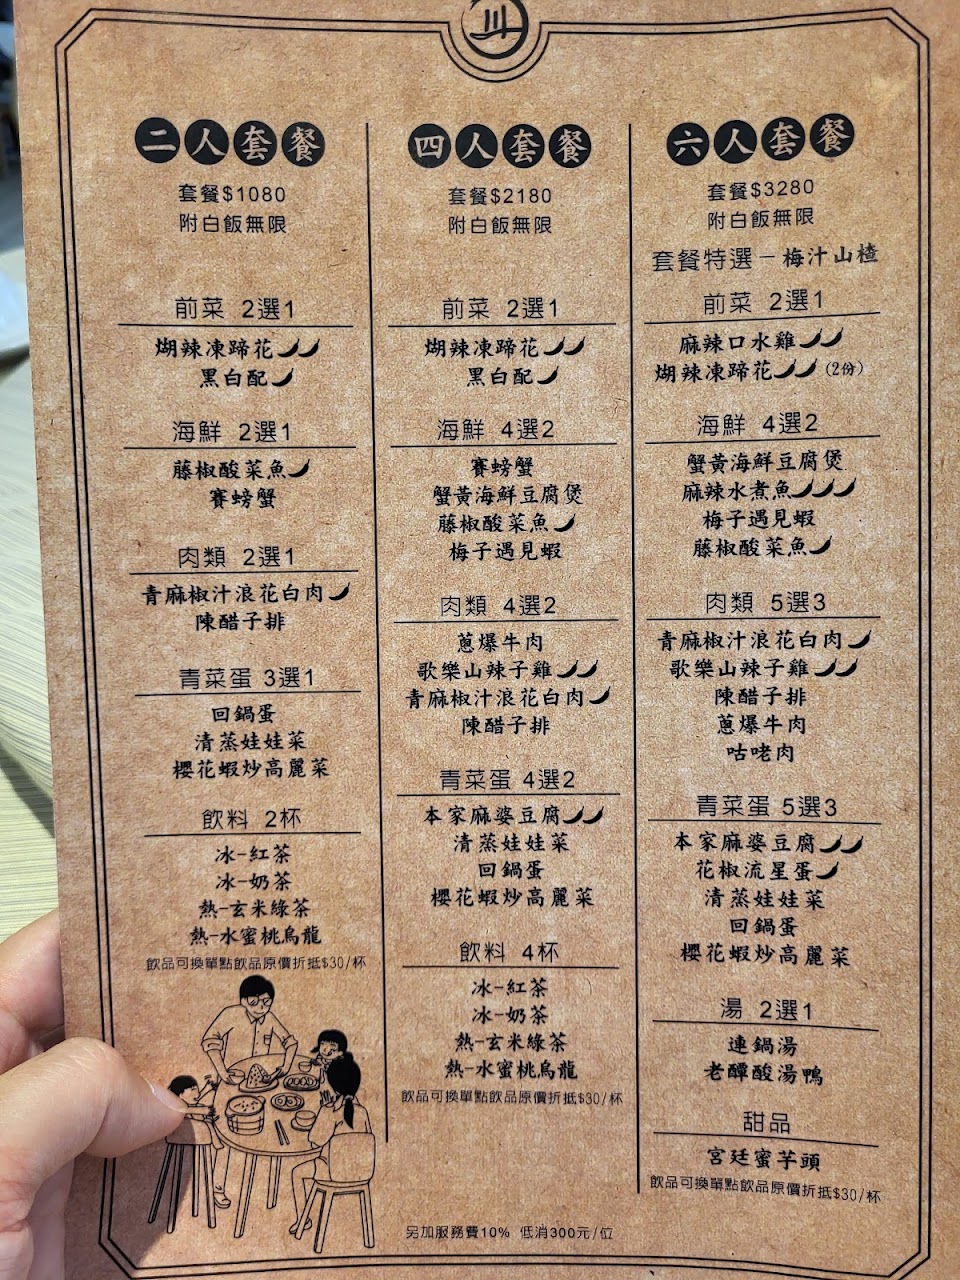 川
二人套餐
套餐$1080
附白飯無限
前菜 2選1
煳辣凍蹄花
黑白配
海鮮 2選1
藤椒酸菜魚
賽螃蟹
肉類 2選1
青麻椒汁浪花白肉
陳醋子排
青菜蛋 3選1
回鍋蛋
清蒸娃娃菜
櫻花蝦炒高麗菜
飲料 2杯
冰-紅茶
冰-奶茶
熱-玄米綠茶
熱-水蜜桃烏龍
飲品可換單點飲品原價折抵$30/杯
四人套餐
套餐$2180
附白飯無限
前菜 2選1
煳辣凍蹄花
黑白配
海鮮 4選2
賽螃蟹
蟹黃海鮮豆腐煲
藤椒酸菜魚
梅子遇見蝦
肉類 4選2
蔥爆牛肉
歌樂山辣子雞
青麻椒汁浪花白肉
陳醋子排
青菜蛋 4選2
本家麻婆豆腐
清蒸娃娃菜
回鍋蛋
櫻花蝦炒高麗菜
飲料 4杯
冰-紅茶
冰-奶茶
熱-玄米綠茶
熱-水蜜桃烏龍
飲品可換單點飲品原價折抵$30/杯
六人套餐
套餐$3280
附白飯無限
套餐特選－梅汁山楂
前菜 2選1
麻辣口水雞
煳辣凍蹄花 (2份)
海鮮 4選2
蟹黃海鮮豆腐煲
麻辣水煮魚
梅子遇見蝦
藤椒酸菜魚
肉類 5選3
青麻椒汁浪花白肉
歌樂山辣子雞
陳醋子排
蔥爆牛肉
咕咾肉
青菜蛋 5選3
本家麻婆豆腐
花椒流星蛋
清蒸娃娃菜
回鍋蛋
櫻花蝦炒高麗菜
湯 2選1
連鍋湯
老罈酸湯鴨
甜品
宮廷蜜芋頭
飲品可換單點飲品原價折抵$30/杯
另加服務費10% 低消300元/位